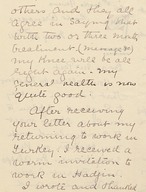 others And they all
agree in saying that
with two or three months
treatment (massages)
my knee will be all
right again. My
general health is now
quite good.
After receiving
your letter about my
returning to work in
Turkey, I received a
warm invitation to
work in Hadjin.
I wrote and thanked